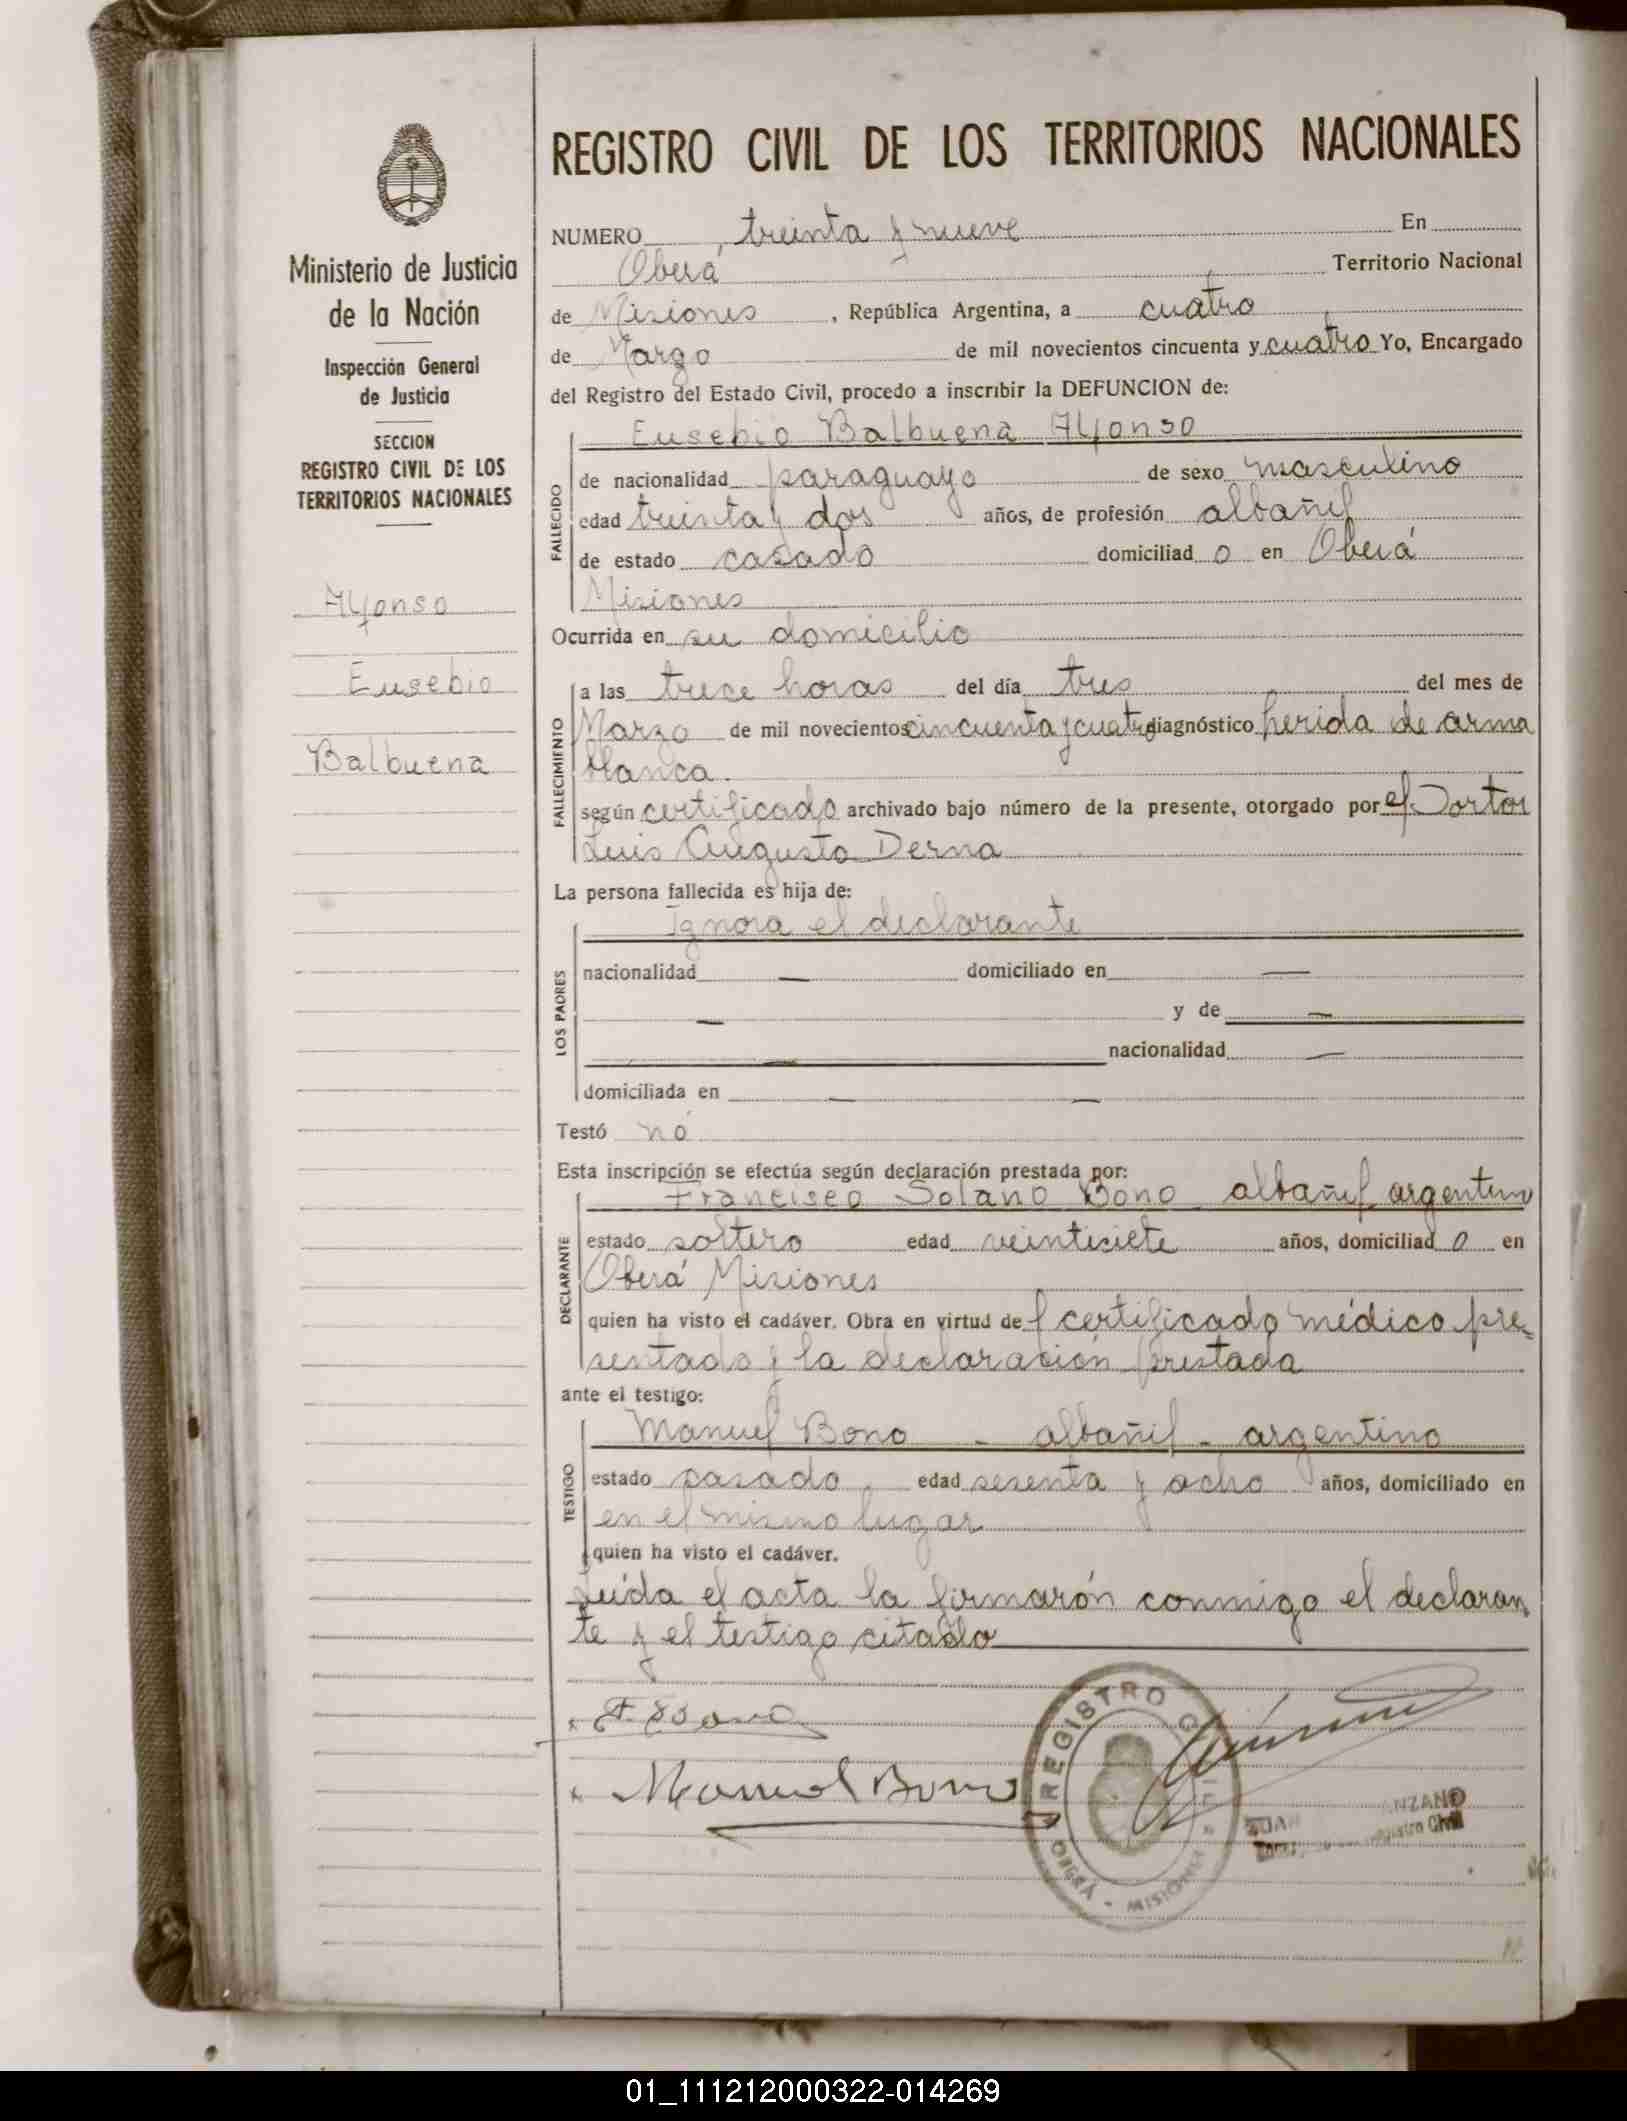 REGISTRO CIVIL DE LOS TERRITORIOS NACIONALES
Ministerio de Justicia
de la Nación
Inspección General
de Justicia
SECCION
REGISTRO CIVIL DE LOS
TERRITORIOS NACIONALES
Alfonso
Eusebio
Balbuena
NUMERO treinta y nueve En
Oberá Territorio Nacional
de Misiones , República Argentina, a cuatro
de Marzo de mil novecientos cincuenta y cuatro Yo, Encargado
del Registro del Estado Civil, procedo a inscribir la DEFUNCION de:
Eusebio Balbuena Alfonso
FALLECIDO
de nacionalidad paraguayo de sexo masculino
edad treinta y dos años, de profesión albañil
de estado casado domiciliad o en Oberá
Misiones
Ocurrida en su domicilio
FALLECIMIENTO
a las trece horas del día tres del mes de
Marzo de mil novecientos cincuenta y cuatro diagnóstico herida de arma
blanca.
según certificado archivado bajo número de la presente, otorgado por el Doctor
Luis Augusto Derna
La persona fallecida es hija de:
Ignora el declarante
LOS PADRES
nacionalidad — domiciliado en —
— y de —
— nacionalidad —
domiciliada en — —
Testó no
Esta inscripción se efectúa según declaración prestada por:
Francisco Solano Bono albañil argentino
DECLARANTE
estado soltero edad veintisiete años, domiciliad o en
Oberá Misiones
quien ha visto el cadáver. Obra en virtud de l certificado médico pre-
sentado y la declaración prestada
ante el testigo:
Manuel Bono - albañil - argentino
TESTIGO
estado casado edad sesenta y ocho años, domiciliado en
en el mismo lugar
quien ha visto el cadáver.
Leída el acta la firmarón conmigo el declaran
te y el testigo citado
F. S Bono
Manuel Bono
REGISTRO CIVIL
OBERÁ - MISIONES
JUAN ANZANO
Registro Civil
01_111212000322-014269